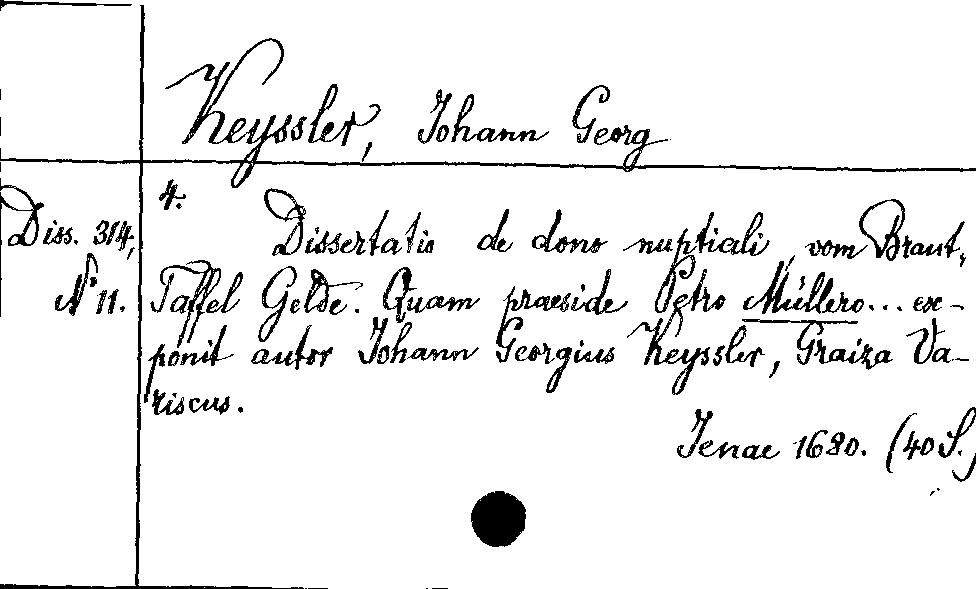 Keyssler, Johann Georg
4.
Diss. 314, Dissertatio de dono nuptiali, vom Braut,
N° 11. Taffel Gelde. Quam praeside Petro Müllero... ex-
ponit autor Johann Georgius Keyssler, Graiza Va-
riscus.
Jenae 1680. (40 S.)